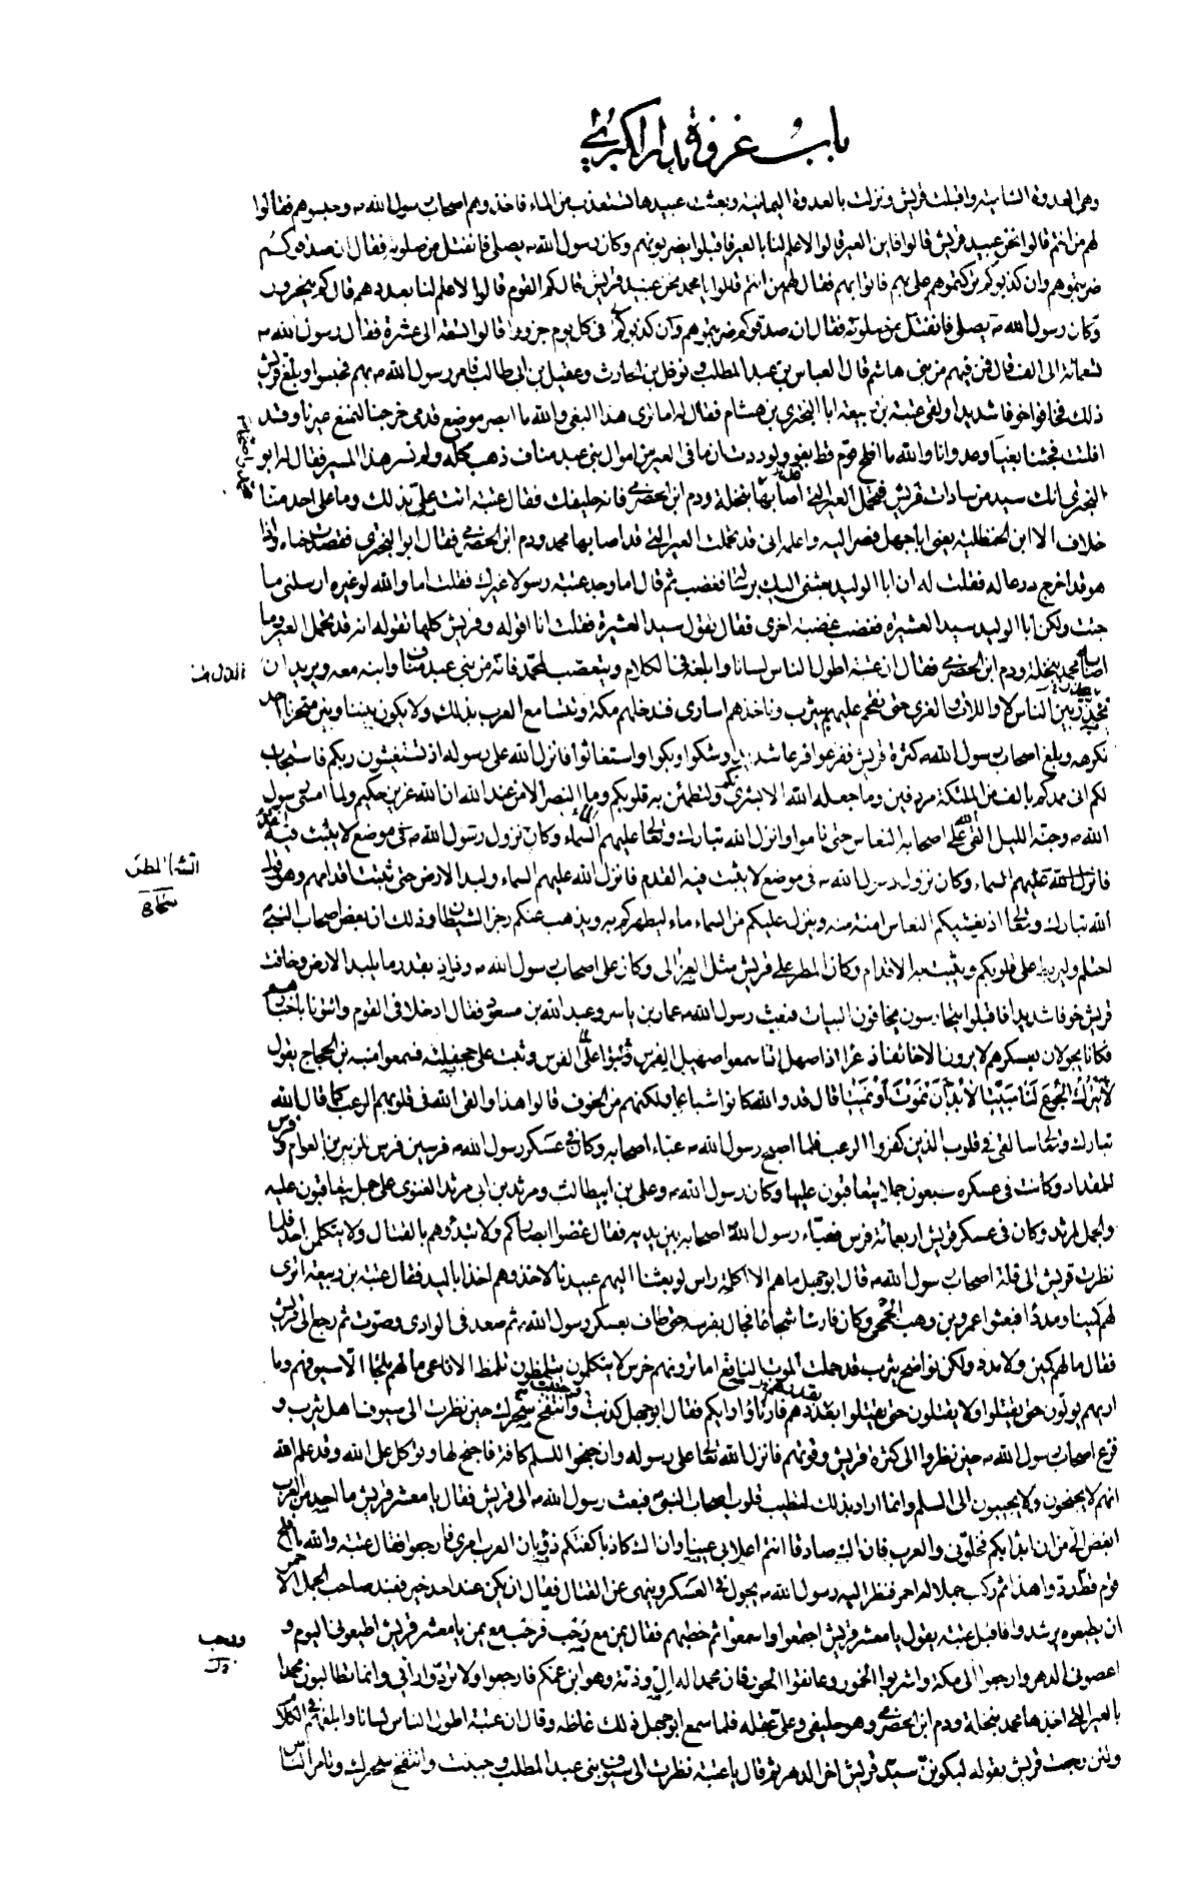 باب غزوة بدر الكبرى
وهى العدوة الشامية واقبلت قريش ونزلت بالعدوة اليمانية وبعثت عبيدها تستعذب من الماء فاخذوهم اصحاب رسول الله ص وحبسوهم فقالوا
لهم من انتم قالوا نحن عبيد قريش قالوا فاين العير قالوا لا علم لنا بالعير فاقبلوا يضربونهم وكان رسول الله ص يصلى فانفتل من صلوته فقال ان صدقوكم
ضربتموهم وان كذبوكم تركتموهم على بهم فاتوا بهم فقال لهم من انتم قالوا يا محمد نحن عبيد قريش قال كم القوم قالوا لا علم لنا بعددهم قال كم ينحرون
وكان رسول الله ص يصلى فانفتل من صلوته فقال ان صدقوكم ضربتموهم وان كذبوكم فى كل يوم جزورا قالوا تسعة الى عشرة فقال رسول الله ص
تسعمائة الى الف قال فمن فيهم من بنى هاشم قال العباس بن عبد المطلب ونوفل بن الحارث وعقيل بن ابى طالب فامر رسول الله ص بهم فحبسوا وبلغ قريش
ذلك فخافوا خوفا شديدا ولقى عتبة بن ربيعة ابا البخترى بن هشام فقال له اما ترى هذا البغى والله ما ابصر موضع قدمى خرجنا لنمنع عيرنا وقد
افلتت فجئنا بغيا وعدوانا والله ما افلح قوم قط بغوا ولوددت ان ما فى العير من اموال بنى عبد مناف ذهب كله ولم نسر هذا المسير فقال له ابو
البخترى انك سيد من سادات قريش فتحمل العير التى اصابها بنخلة ودم ابن الحضرمى فانه حليفك فقال عتبة انت على بذلك وما على احد منا
خلاف الا ابن الحنظلية يعنى ابا جهل فصر اليه واعلمه انى قد تحملت العير التى قد اصابها محمد ودم ابن الحضرمى فقال ابو البخترى فقصدت خباءه واذا
هو قد اخرج درعا له فقلت له ان ابا الوليد بعثنى اليك برسالة فغضب ثم قال اما وجد عتبة رسولا غيرك فقلت اما والله لو غيره ارسلنى ما
جئت ولكن ابا الوليد سيد العشيرة فغضب غضبة اخرى فقال تقول سيد العشيرة فقلت انا اقوله وقريش كلها تقوله انه قد تحمل العير وما
اصابه محمد بنخلة ودم ابن الحضرمى فقال ان عتبة اطول الناس لسانا وابلغه فى الكلام ويتعصب لمحمد فانه من بنى عبد مناف وابنه معه ويريد ان
بين الناس لا واللات والعزى حتى نقحم عليهم بيثرب وناخذهم اسارى فندخلهم مكة وتتسامع العرب بذلك ولا يكون بيننا وبين متجرنا احد
نكرهه وبلغ اصحاب رسول الله ص كثرة قريش ففزعوا فزعا شديدا وشكوا وبكوا واستغاثوا فانزل الله على رسوله اذ تستغيثون ربكم فاستجاب
لكم انى ممدكم بالف من الملئكة مردفين وما جعله الله الا بشرى ولتطمئن به قلوبكم وما النصر الا من عند الله ان الله عزيز حكيم ولما امسى رسول
الله ص وجنه الليل القى الله على اصحابه النعاس حتى ناموا وانزل الله تبارك وتعالى عليهم السماء وكان نزول رسول الله ص فى موضع لا يثبت فيه القدم
فانزل الله عليهم السماء وكان نزول رسول الله ص فى موضع لا يثبت فيه القدم فانزل الله عليهم السماء ولبد الارض حتى ثبتت اقدامهم وهو قول
الله تبارك وتعالى اذ يغشيكم النعاس امنة منه وينزل عليكم من السماء ماء ليطهركم به ويذهب عنكم رجز الشيطان وذلك ان بعض اصحاب النبى
احتلم وليربط على قلوبكم ويثبت به الاقدام وكان المطر على قريش مثل العزالى وكان على اصحاب رسول الله ص رذاذ بقدر ما يلبد الارض وخافت
قريش خوفا شديدا فاقبلوا يتحارسون يخافون البيات فبعث رسول الله ص عمار بن ياسر وعبد الله بن مسعود فقال ادخلا فى القوم وائتونا باخبارهم
فكانا يجولان بعسكرهم لا يرون الا خائفا ذعرا اذا صهل الفرس وثب على جحفلته فسمعوا منبه بن الحجاج يقول
لا يترك الجوع لنا مبيتا لابد ان نموت او نميتا قال قد والله كانوا شباعا ولكنهم من الخوف قالوا هذا والقى الله فى قلوبهم الرعب كما قال الله
تبارك وتعالى سالقى فى قلوب الذين كفروا الرعب فلما اصبح رسول الله ص عباء اصحابه وكان فى عسكر رسول الله ص فرسين فرس للزبير بن العوام وفرس
للمقداد وكانت فى عسكره سبعون جملا يتعاقبون عليها وكان رسول الله ص وعلى بن ابيطالب ومرثد بن ابى مرثد الغنوى على جمل يتعاقبون عليه
والجمل لمرثد وكان فى عسكر قريش اربعمائة فرس فعباء رسول الله اصحابه بين يديه فقال غضوا ابصاركم ولا تبدؤهم بالقتال ولا يتكلمن احد فلما
نظرت قريش الى قلة اصحاب رسول الله ص قال ابو جهل ما هم الا اكلة راس لو بعثنا اليهم عبيدنا لاخذوهم اخذا باليد فقال عتبة بن ربيعة اترى
لهم كمينا ومددا فبعثوا عمرو بن وهب الجمحى وكان فارسا شجاعا فجال بفرسه حتى طاف بعسكر رسول الله ص ثم صعد فى الوادى وصوت ثم رجع الى قريش
فقال ما لهم كمين ولا مدد ولكن نواضح يثرب قد حملت الموت الناقع اما ترونهم خرس لا يتكلمون يتلمظون تلمظ الافاعى ما لهم ملجا الا سيوفهم وما
اريهم يولون حتى يقتلوا ولا يقتلون حتى يقتلوا بعددهم فارتاوا رايكم فقال ابو جهل كذبت وجبنت وانتفخ سحرك حين نظرت الى سيوف اهل يثرب و
فزع اصحاب رسول الله ص حين نظروا الى كثرة قريش وقوتهم فانزل الله تعالى على رسوله وان جنحوا للسلم كافة فاجنح لها وتوكل على الله وقد علم الله
انهم لا يجنحون ولا يجيبون الى السلم وانما اراد بذلك لتطيب قلوب اصحاب النبى ص فبعث رسول الله ص الى قريش فقال يا معشر قريش ما احد من العرب
ابغض الى من ان ابدأ بكم فخلونى والعرب فان اك صادقا فانتم اعلا بى عينا وان اك كاذبا كفتكم ذؤبان العرب امرى فارجعوا فقال عتبة والله ما افلح
قوم قط ردوا هذا ثم ركب جملا له احمر فنظر اليه رسول الله ص يجول فى العسكر وينهى عن القتال فقال ان يكن عند احد خير فعند صاحب الجمل الاحمر
ان يطيعوه يرشدوا فاقبل عتبة يقول يا معشر قريش اجتمعوا واسمعوا ثم خطبهم فقال يمن مع رحب فرحب مع يمن يا معشر قريش اطيعونى اليوم و
اعصونى الدهر وارجعوا الى مكة واشربوا الخمور وعانقوا الحور فان محمدا له ال وذمة وهو ابن عمكم فارجعوا ولا تردوا رايى وانما تطالبون محمدا
بالعير التى اخذها محمد بنخلة ودم ابن الحضرمى وهو حليفى وعلى عقله فلما سمع ابو جهل ذلك غاظه وقال ان عتبة اطول الناس لسانا وابلغهم فى الكلام
ولئن رجعت قريش بقوله ليكونن سيد قريش اخر الدهر ثم قال يا عتبة نظرت الى سيوف بنى عبد المطلب وجبنت وانتفخ سحرك وتامر الناس